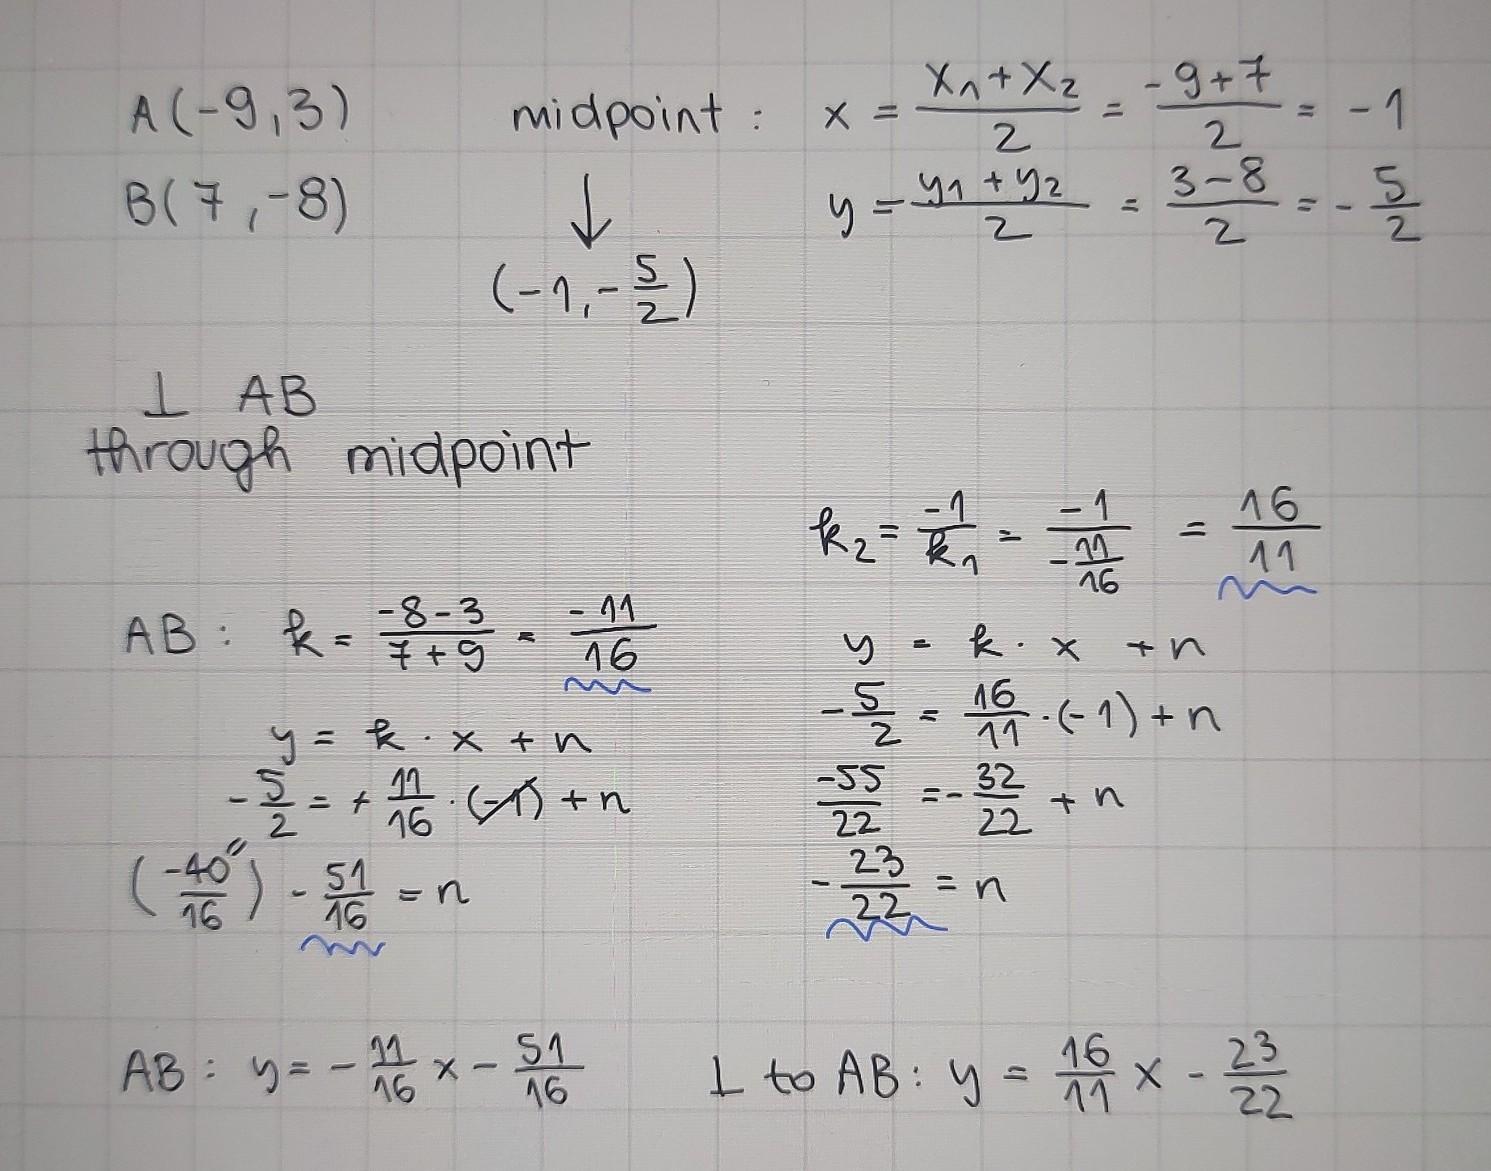 A(-9,3)
B(7,-8)
midpoint : x = (x₁+x₂)/2 = (-9+7)/2 = -1
y = (y₁+y₂)/2 = (3-8)/2 = -5/2
↓
(-1,-5/2)
⊥ AB
through midpoint
AB : k = (-8-3)/(7+9) = -11/16
y = k · x + n
-5/2 = + 11/16 · (-1) + n
(-40/16) - 51/16 = n
k₂ = -1/k₁ = -1/(-11/16) = 16/11
y = k · x + n
-5/2 = 16/11 · (-1) + n
-55/22 = -32/22 + n
-23/22 = n
AB : y = -11/16 x - 51/16
⊥ to AB : y = 16/11 x - 23/22